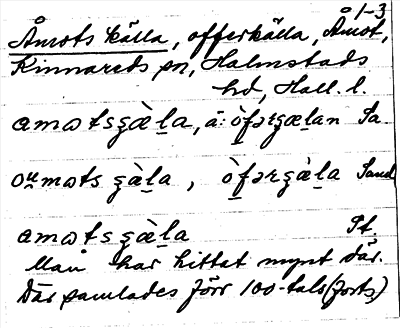 Å 1-3
Åmots källa, offerkälla, Åmot,
Kinnareds sn, Halmstads
hd, Hall. l.
amotsʒὰla, ä: ὸfərʒælan Sa.
oᵘmɷts ʒὰla, ὸfərʒὰla Sand
amɷtsʒὰla St.
Man har hittat mynt där.
Där samlades förr 100-tals (forts)